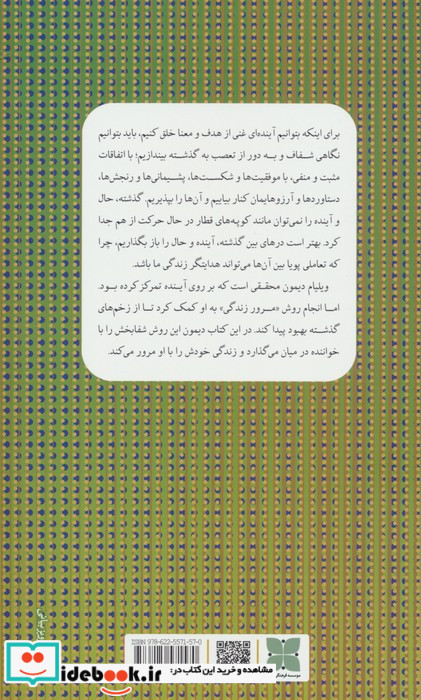 برای اینکه بتوانیم آینده‌ای غنی از هدف و معنا خلق کنیم، باید بتوانیم
نگاهی شفاف و به دور از تعصب به گذشته بیندازیم؛ با اتفاقات
مثبت و منفی، با موفقیت‌ها و شکست‌ها، پشیمانی‌ها و رنجش‌ها،
دستاوردها و آرزوهایمان کنار بیاییم و آن‌ها را بپذیریم. گذشته، حال
و آینده را نمی‌توان مانند کوپه‌های قطار در حال حرکت از هم جدا
کرد. بهتر است درهای بین گذشته، آینده و حال را باز بگذاریم، چرا
که تعاملی پویا بین آن‌ها می‌تواند هدایتگر زندگی ما باشد.
ویلیام دیمون محققی است که بر روی آینده تمرکز کرده بود.
اما انجام روش «مرور زندگی» به او کمک کرد تا از زخم‌های
گذشته بهبود پیدا کند. در این کتاب دیمون این روش شفابخش را با
خواننده در میان می‌گذارد و زندگی خودش را با او مرور می‌کند.
ISBN 978-622-5571-57-0
موسسه فرهنگی
مشاهده و خرید این کتاب در:
idebook.ir